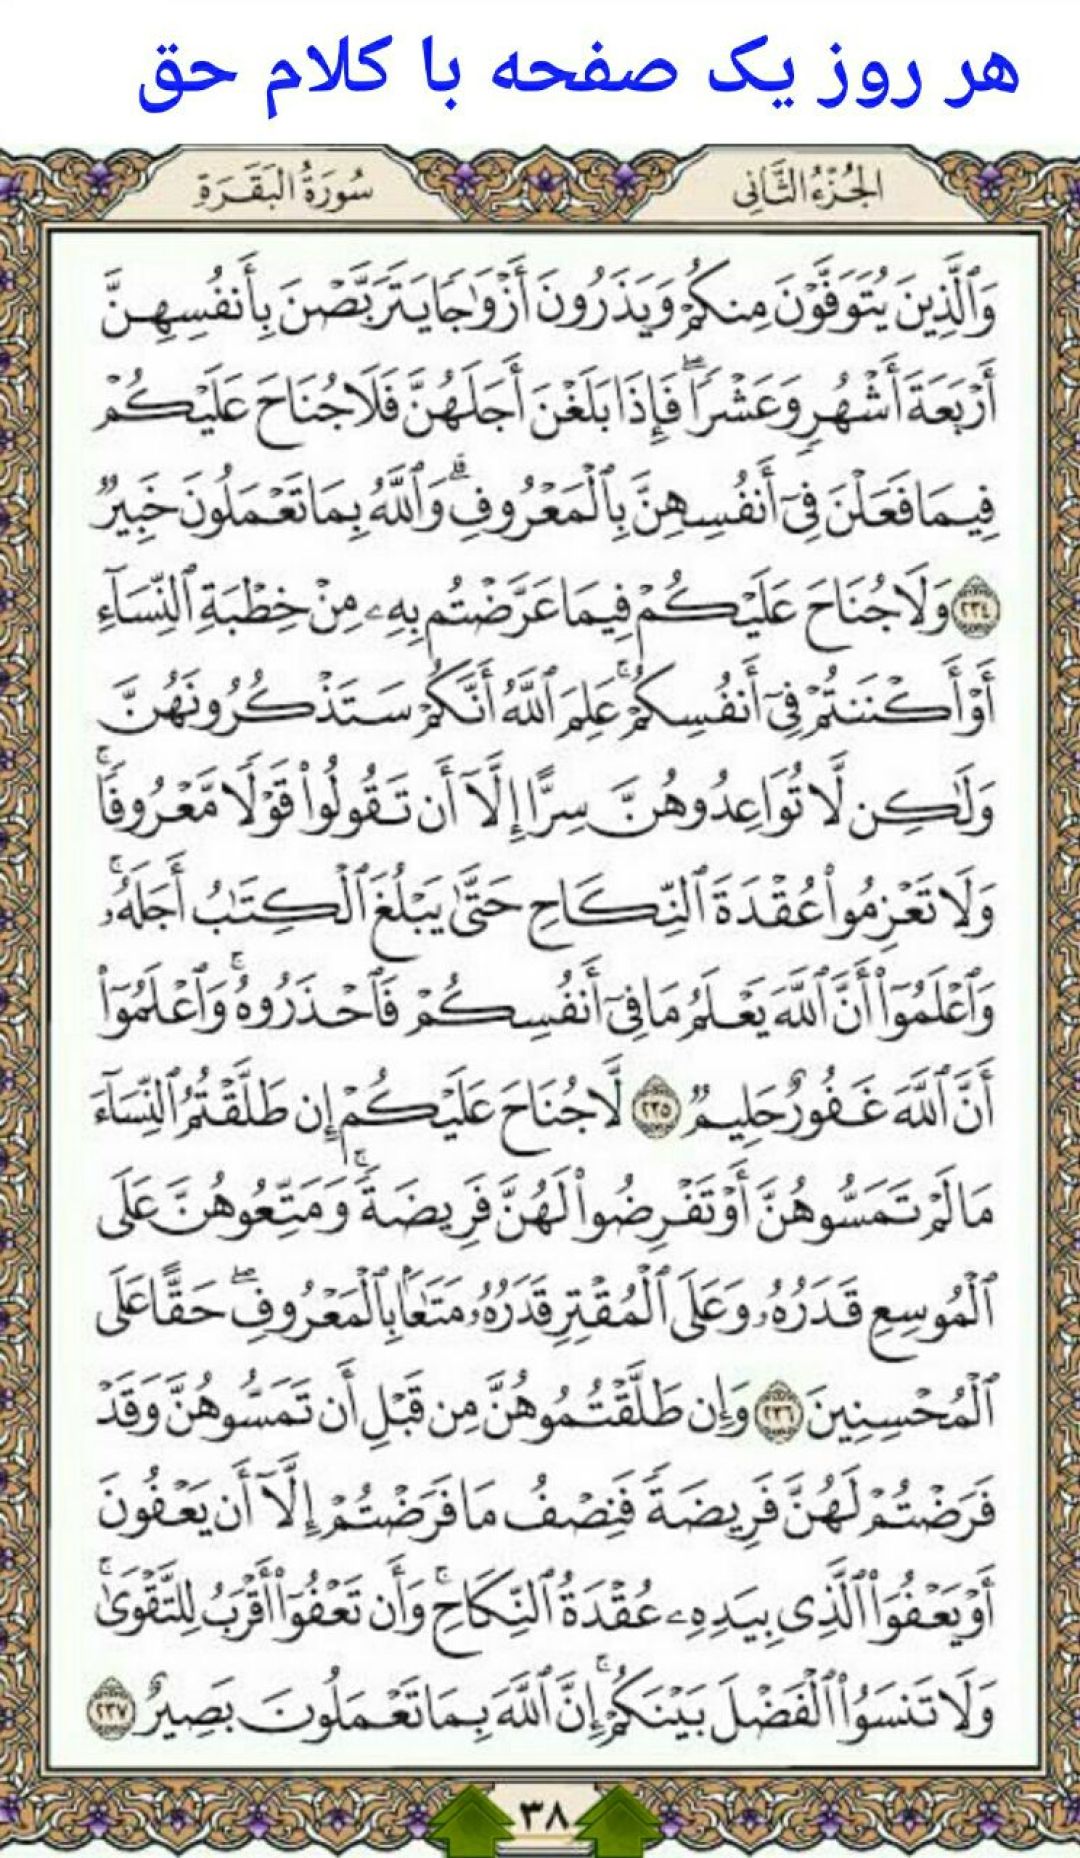 هر روز یک صفحه با کلام حق
الجُزْءُ الثَّانِي
سُورَةُ الْبَقَرَةِ
وَٱلَّذِينَ يُتَوَفَّوْنَ مِنكُمْ وَيَذَرُونَ أَزْوَٰجًا يَتَرَبَّصْنَ بِأَنفُسِهِنَّ
أَرْبَعَةَ أَشْهُرٍ وَعَشْرًا ۖ فَإِذَا بَلَغْنَ أَجَلَهُنَّ فَلَا جُنَاحَ عَلَيْكُمْ
فِيمَا فَعَلْنَ فِىٓ أَنفُسِهِنَّ بِٱلْمَعْرُوفِ ۗ وَٱللَّهُ بِمَا تَعْمَلُونَ خَبِيرٌ
٢٣٤ وَلَا جُنَاحَ عَلَيْكُمْ فِيمَا عَرَّضْتُم بِهِۦ مِنْ خِطْبَةِ ٱلنِّسَآءِ
أَوْ أَكْنَنتُمْ فِىٓ أَنفُسِكُمْ ۚ عَلِمَ ٱللَّهُ أَنَّكُمْ سَتَذْكُرُونَهُنَّ
وَلَٰكِن لَّا تُوَاعِدُوهُنَّ سِرًّا إِلَّآ أَن تَقُولُوا۟ قَوْلًا مَّعْرُوفًا ۚ
وَلَا تَعْزِمُوا۟ عُقْدَةَ ٱلنِّكَاحِ حَتَّىٰ يَبْلُغَ ٱلْكِتَٰبُ أَجَلَهُۥ ۚ
وَٱعْلَمُوٓا۟ أَنَّ ٱللَّهَ يَعْلَمُ مَا فِىٓ أَنفُسِكُمْ فَٱحْذَرُوهُ ۚ وَٱعْلَمُوٓا۟
أَنَّ ٱللَّهَ غَفُورٌ حَلِيمٌ ٢٣٥ لَّا جُنَاحَ عَلَيْكُمْ إِن طَلَّقْتُمُ ٱلنِّسَآءَ
مَا لَمْ تَمَسُّوهُنَّ أَوْ تَفْرِضُوا۟ لَهُنَّ فَرِيضَةً ۚ وَمَتِّعُوهُنَّ عَلَى
ٱلْمُوسِعِ قَدَرُهُۥ وَعَلَى ٱلْمُقْتِرِ قَدَرُهُۥ مَتَٰعًۢا بِٱلْمَعْرُوفِ ۖ حَقًّا عَلَى
ٱلْمُحْسِنِينَ ٢٣٦ وَإِن طَلَّقْتُمُوهُنَّ مِن قَبْلِ أَن تَمَسُّوهُنَّ وَقَدْ
فَرَضْتُمْ لَهُنَّ فَرِيضَةً فَنِصْفُ مَا فَرَضْتُمْ إِلَّآ أَن يَعْفُونَ
أَوْ يَعْفُوَا۟ ٱلَّذِى بِيَدِهِۦ عُقْدَةُ ٱلنِّكَاحِ ۚ وَأَن تَعْفُوٓا۟ أَقْرَبُ لِلتَّقْوَىٰ ۚ
وَلَا تَنسَوُا۟ ٱلْفَضْلَ بَيْنَكُمْ ۚ إِنَّ ٱللَّهَ بِمَا تَعْمَلُونَ بَصِيرٌ ٢٣٧
٣٨